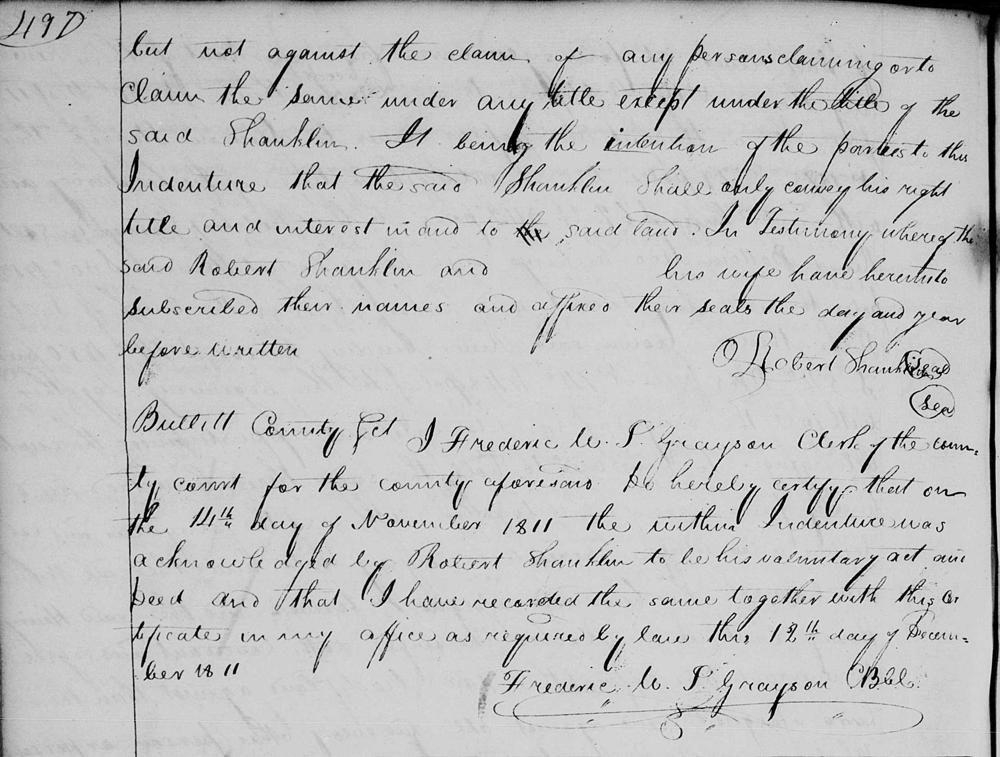 490
but not against the claim of any persons claiming or to
claim the same under any title except under the title of the
said Shanklin. It being the intention of the parties to this
Indenture that the said Shanklin Shall only convey his right
title and interest in and to the said land. In Testimony whereof the
said Robert Shanklin and his wife have hereunto
subscribed their names and affixed their seals the day and year
before written Robert Shanklin Seal
Seal
Bullitt County Sct I Frederic W. S. Grayson Clerk of the coun-
ty court for the county aforesaid do hereby certify that on
the 14th day of November 1811 the within Indenture was
acknowledged by Robert Shanklin to be his voluntary act and
Deed and that I have recorded the same together with this Cer
tificate in my office as required by law this 12th day of Decem-
ber 1811
Frederic W. S. Grayson CBCC